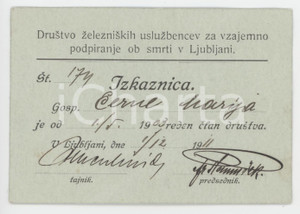 Društvo železniških uslužbencev za vzajemno
podpiranje ob smrti v Ljubljani.
Št. 174
Izkaznica.
Gosp. Černe Marija
je od 1/5. 19 reden član društva.
V Ljubljani, dne 1/12 1911
tajnik. predsednik.